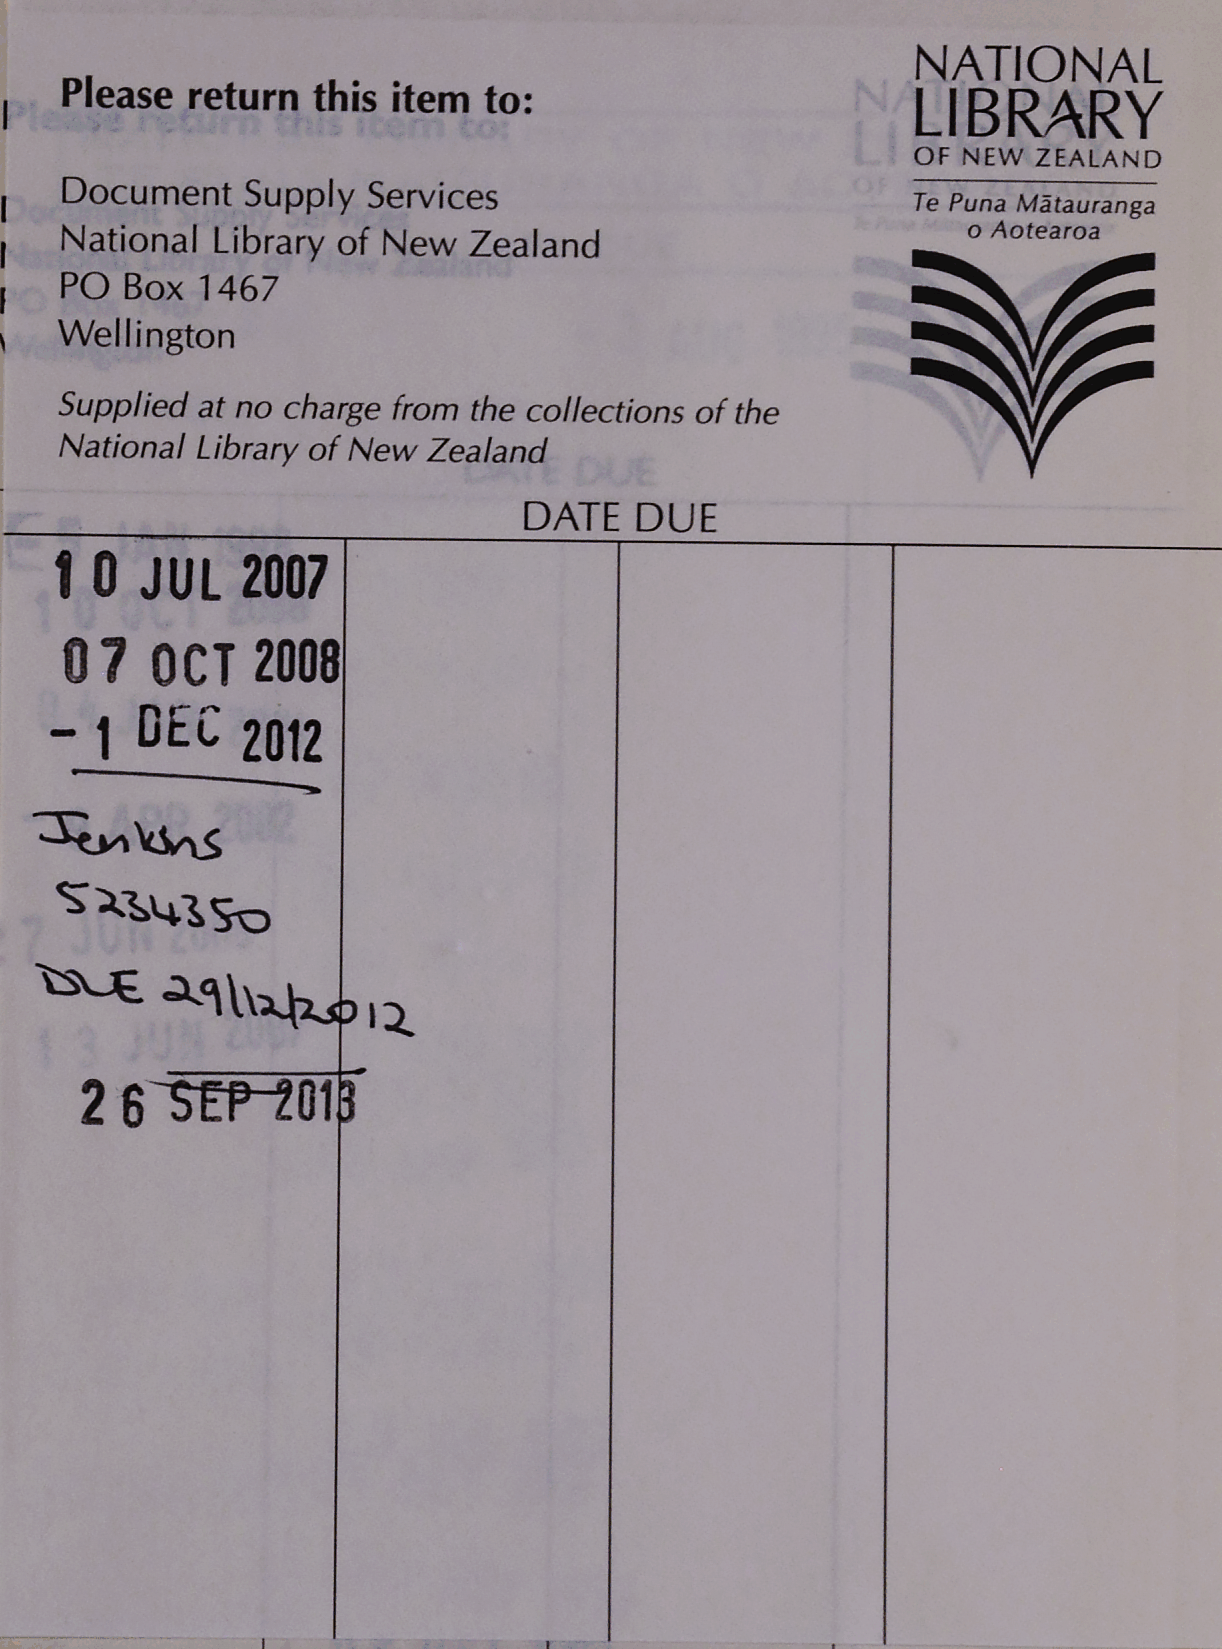 Please return this item to:
Document Supply Services
National Library of New Zealand
PO Box 1467
Wellington
Supplied at no charge from the collections of the
National Library of New Zealand
NATIONAL
LIBRARY
OF NEW ZEALAND
Te Puna Mātauranga
o Aotearoa
DATE DUE
10 JUL 2007
07 OCT 2008
-1 DEC 2012
Jenkins
5234350
DUE 29/12/2012
26 SEP 2013